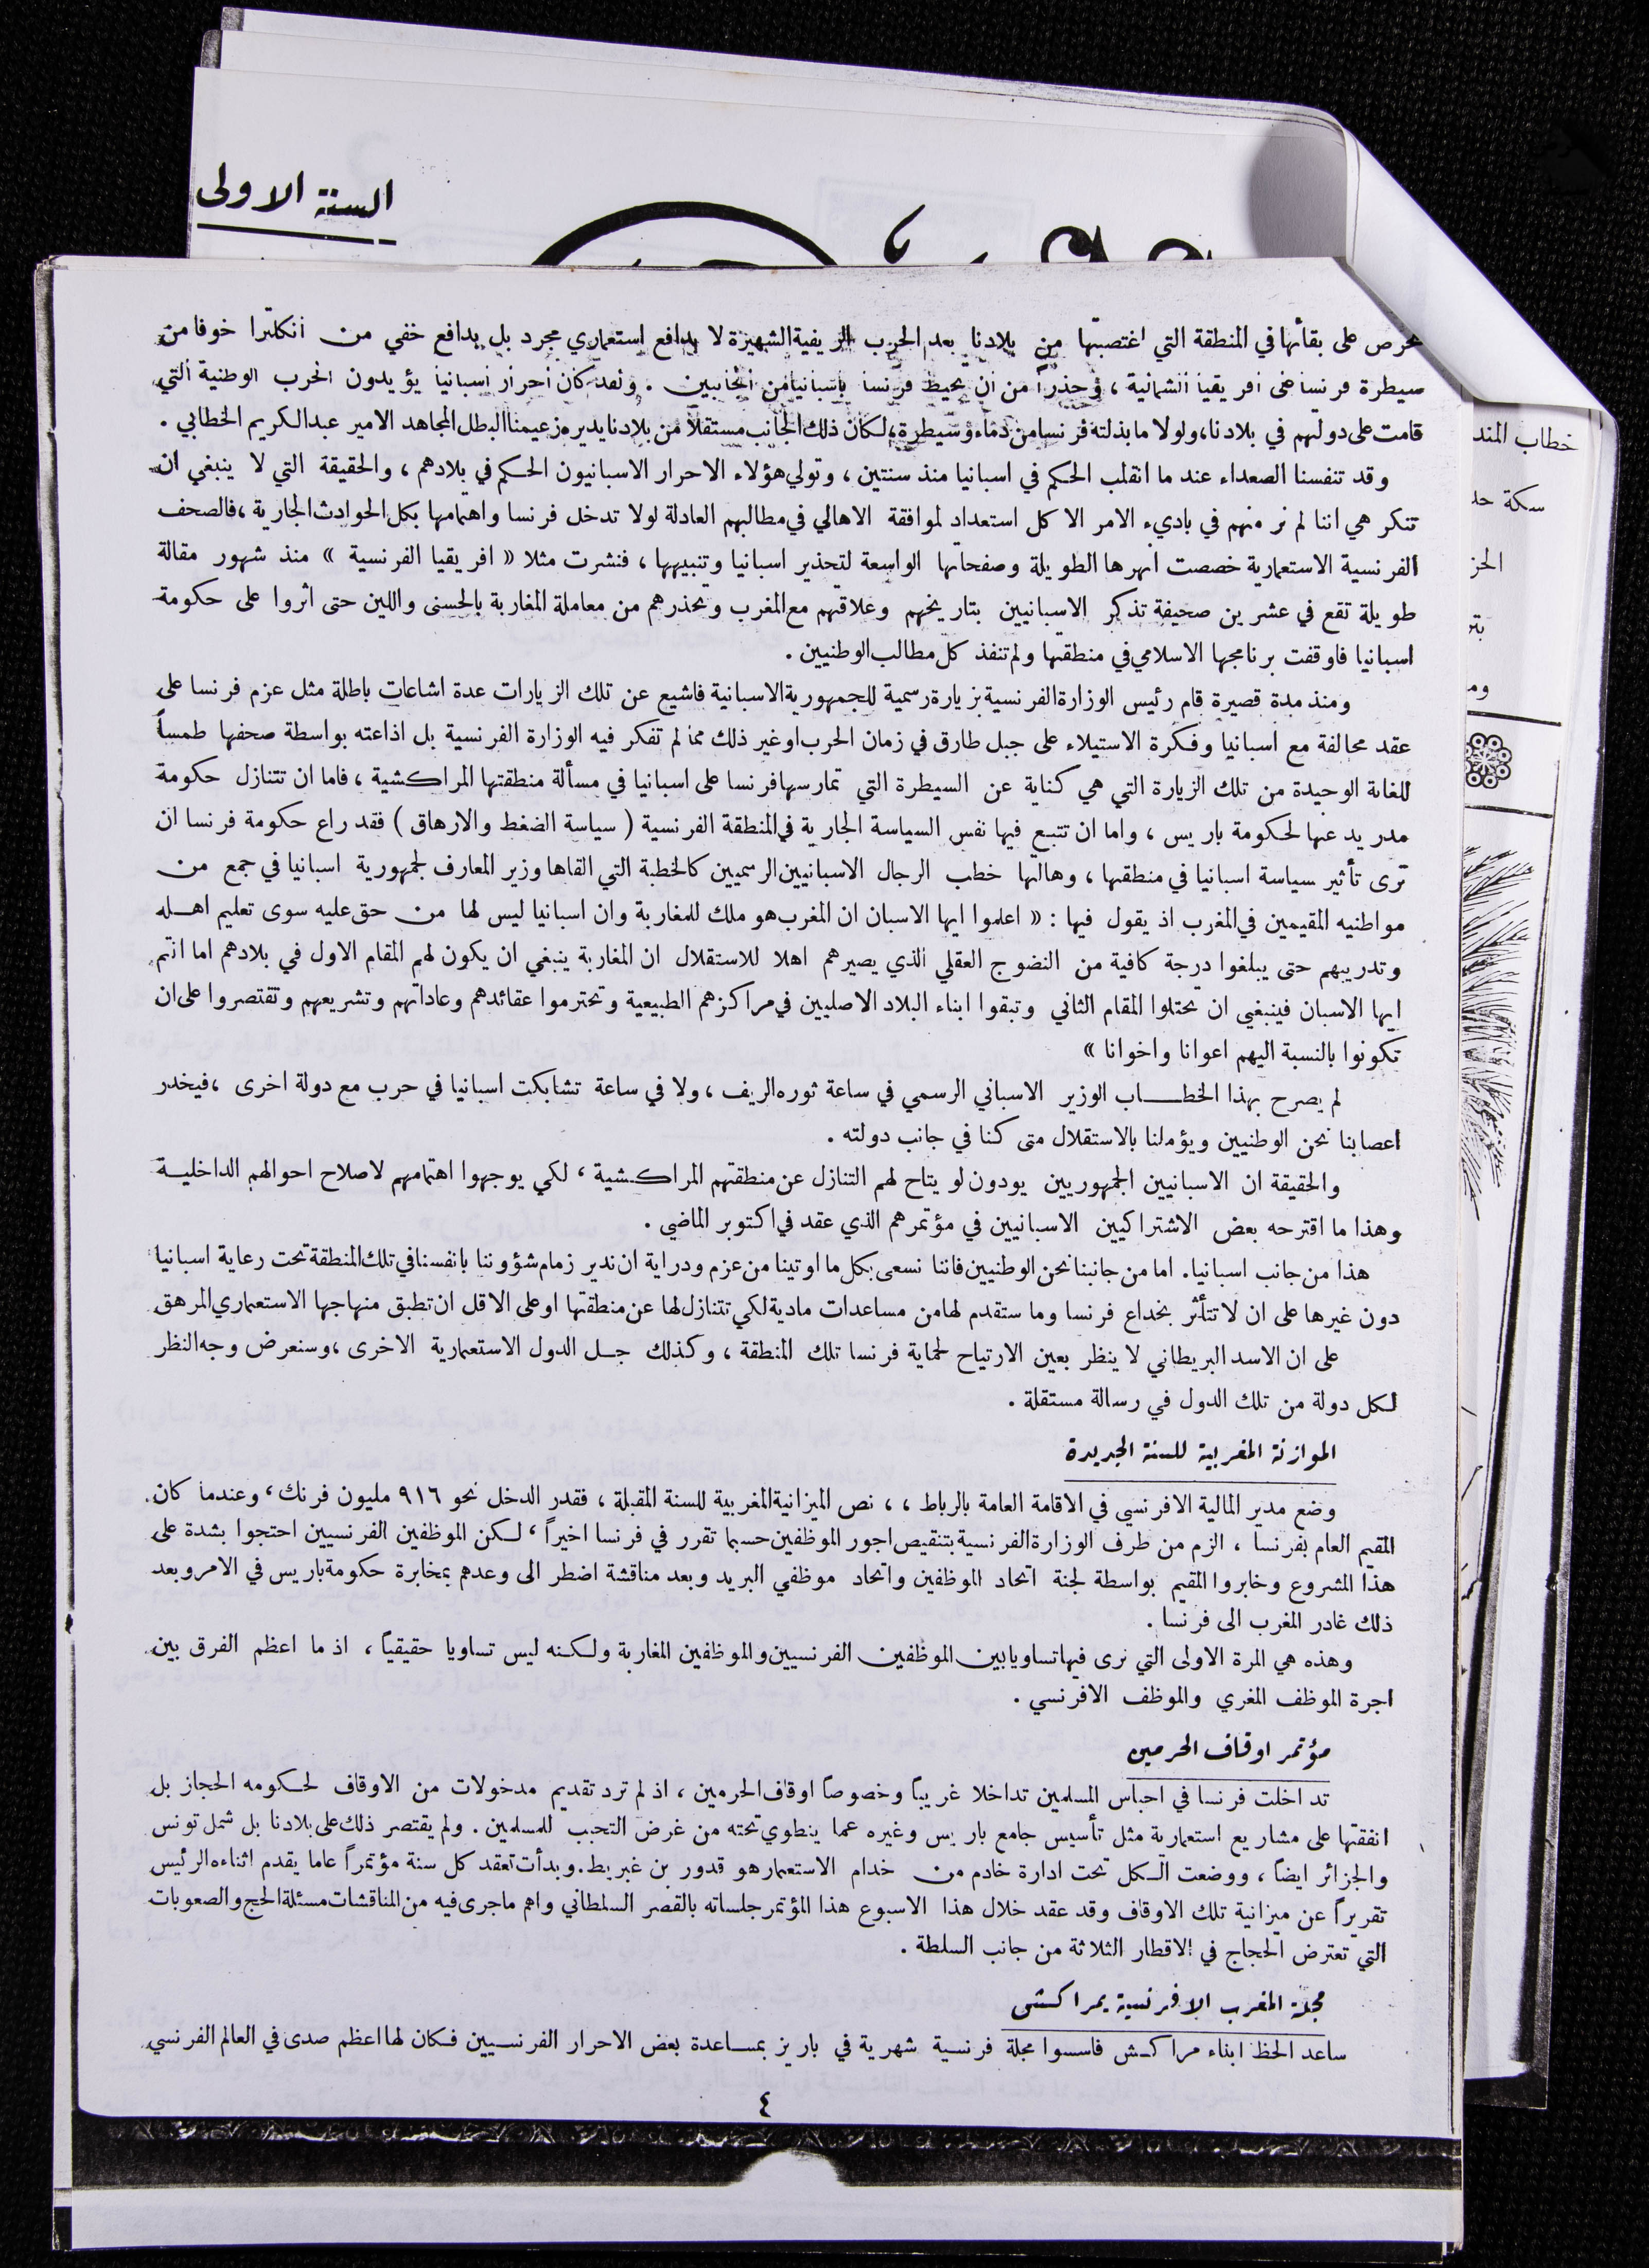 السنة الاولى
خطاب المند
سكة حد
الحز
تحرص على بقائها في المنطقة التي اغتصبتها من بلادنا بعد الحرب الريفية الشهيرة لا بدافع استعماري مجرد بل بدافع خفي من انكلترا خوفا من
سيطرة فرنسا على افريقيا الشمالية ، وحذراً من ان يحيط فرنسا باسبانيا من الجانبين . ولقد كان احرار اسبانيا يؤيدون الحرب الوطنية التي
قامت على دولتهم في بلادنا، ولولا ما بذلته فرنسا من دماء وسيطرة، لكان ذلك الجانب مستقلاً من بلادنا يديره زعيمنا البطل المجاهد الامير عبدالكريم الخطابي .
وقد تنفسنا الصعداء عند ما انقلب الحكم في اسبانيا منذ سنتين ، وتولي هؤلاء الاحرار الاسبانيون الحكم في بلادهم ، والحقيقة التي لا ينبغي ان
تنكر هي اننا لم نر منهم في باديء الامر الا كل استعداد لموافقة الاهالي في مطالبهم العادلة لولا تدخل فرنسا واهتمامها بكل الحوادث الجارية ، فالصحف
الفرنسية الاستعمارية خصصت انهرها الطويلة وصفحاتها الواسعة لتحذير اسبانيا وتنبيهها ، فنشرت مثلا « افريقيا الفرنسية » منذ شهور مقالة
طويلة تقع في عشرين صحيفة تذكر الاسبانيين بتاريخهم وعلاقتهم مع المغرب وتحذرهم من معاملة المغاربة بالحسنى واللين حتى اثروا على حكومة
اسبانيا فاوقفت برنامجها الاسلامي في منطقتها ولم تنفذ كل مطالب الوطنيين .
ومنذ مدة قصيرة قام رئيس الوزارة الفرنسية بزيارة رسمية للجمهورية الاسبانية فاشيع عن تلك الزيارات عدة اشاعات باطلة مثل عزم فرنسا على
عقد محالفة مع اسبانيا وفكرة الاستيلاء على جبل طارق في زمان الحرب او غير ذلك مما لم تفكر فيه الوزارة الفرنسية بل اذاعته بواسطة صحفها طمساً
للغاية الوحيدة من تلك الزيارة التي هي كناية عن السيطرة التي تمارسها فرنسا على اسبانيا في مسألة منطقتها المراكشية ، فاما ان تتنازل حكومة
مدريد عنها لحكومة باريس ، واما ان تتبع فيها نفس السياسة الجارية في المنطقة الفرنسية ( سياسة الضغط والارهاق ) فقد راع حكومة فرنسا ان
ترى تأثير سياسة اسبانيا في منطقتها ، وهالتها خطب الرجال الاسبانيين الرسميين كالخطبة التي القاها وزير المعارف لجمهورية اسبانيا في جمع من
مواطنيه المقيمين في المغرب اذ يقول فيها : « اعلموا ايها الاسبان ان المغرب هو ملك للمغاربة وان اسبانيا ليس لها من حق عليه سوى تعليم اهله
وتدريبهم حتى يبلغوا درجة كافية من النضوج العقلي الذي يصيرهم اهلا للاستقلال ان المغاربة ينبغي ان يكون لهم المقام الاول في بلادهم اما انتم
ايها الاسبان فينبغي ان تحتلوا المقام الثاني وتبقوا ابناء البلاد الاصليين في مراكزهم الطبيعية وتحترموا عقائدهم وعاداتهم وتشريعهم وتقتصروا على ان
تكونوا بالنسبة اليهم اعوانا واخوانا »
لم يصرح بهذا الخطـــاب الوزير الاسباني الرسمي في ساعة ثوره الريف ، ولا في ساعة تشابكت اسبانيا في حرب مع دولة اخرى ، فيخدر
اعصابنا نحن الوطنيين ويؤملنا بالاستقلال متى كنا في جانب دولته .
والحقيقة ان الاسبانيين الجمهوريين يودون لو يتاح لهم التنازل عن منطقتهم المراكشية ، لكي يوجهوا اهتمامهم لاصلاح احوالهم الداخليـة
وهذا ما اقترحه بعض الاشتراكيين الاسبانيين في مؤتمرهم الذي عقد في اكتوبر الماضي .
هذا من جانب اسبانيا. اما من جانبنا نحن الوطنيين فاننا نسعى بكل ما اوتينا من عزم ودراية ان ندير زمام شؤوننا بانفسنا في تلك المنطقة تحت رعاية اسبانيا
دون غيرها على ان لا تتأثر بخداع فرنسا وما ستقدم لها من مساعدات مادية لكي تتنازل لها عن منطقتها او على الاقل ان تطبق منهاجها الاستعماري المرهق
على ان الاسد البريطاني لا ينظر بعين الارتياح لحماية فرنسا تلك المنطقة ، وكذلك جـل الدول الاستعمارية الاخرى ، وسنعرض وجه النظر
لكل دولة من تلك الدول في رسالة مستقلة .
الموازنة المغربية للسنة الجديدة
وضع مدير المالية الافرنسي في الاقامة العامة بالرباط ، ، نص الميزانية المغربية للسنة المقبلة ، فقدر الدخل نحو ٩١٦ مليون فرنك ، وعندما كان
المقيم العام بفرنسا ، الزم من طرف الوزارة الفرنسية بتنقيص اجور الموظفين حسبما تقرر في فرنسا اخيراً ، لكن الموظفين الفرنسيين احتجوا بشدة على
هذا المشروع وخابروا المقيم بواسطة لجنة اتحاد الموظفين واتحاد موظفي البريد وبعد مناقشة اضطر الى وعدهم بمخابرة حكومة باريس في الامر وبعد
ذلك غادر المغرب الى فرنسا .
وهذه هي المرة الاولى التي نرى فيها تساويا بين الموظفين الفرنسيين والموظفين المغاربة ولكنه ليس تساويا حقيقياً ، اذ ما اعظم الفرق بين
اجرة الموظف المغري والموظف الافرنسي .
مؤتمر اوقاف الحرمين
تداخلت فرنسا في احباس المسلمين تداخلا غريباً وخصوصاً اوقاف الحرمين ، اذ لم ترد تقديم مدخولات من الاوقاف لحكومه الحجاز بل
انفقتها على مشاريع استعمارية مثل تأسيس جامع باريس وغيره عما ينطوي تحته من غرض التحبب للمسلمين . ولم يقتصر ذلك على بلادنا بل شمل تونس
والجزائر ايضاً ، ووضعت الكل تحت ادارة خادم من خدام الاستعمار هو قدور بن غبريط. وبدأت تعقد كل سنة مؤتمراً عاما يقدم اثناءه الرئيس
تقريراً عن ميزانية تلك الاوقاف وقد عقد خلال هذا الاسبوع هذا المؤتمر جلساته بالقصر السلطاني واهم ماجرى فيه من المناقشات مسئلة الحج والصعوبات
التي تعترض الحجاج في الاقطار الثلاثة من جانب السلطة .
مجلة المغرب الافرنسية بمراكش
ساعد الحظ ابناء مراكش فاسسوا مجلة فرنسية شهرية في باريز بمساعدة بعض الاحرار الفرنسيين فكان لها اعظم صدى في العالم الفرنسي
٤